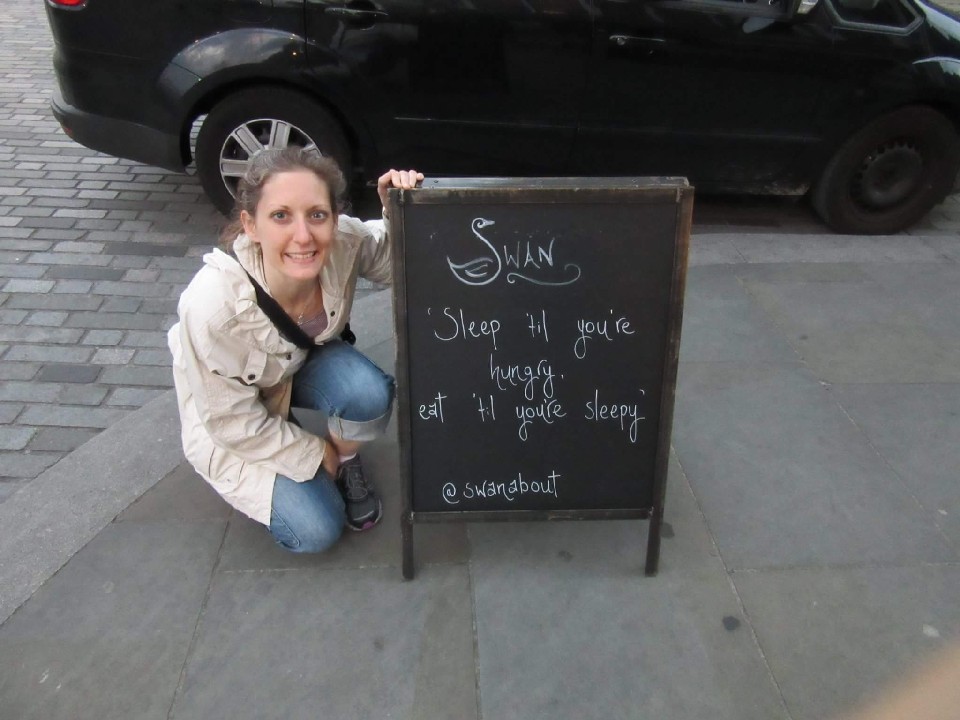 Swan
'Sleep 'til you're
hungry,
eat 'til you're sleepy'
@swanabout